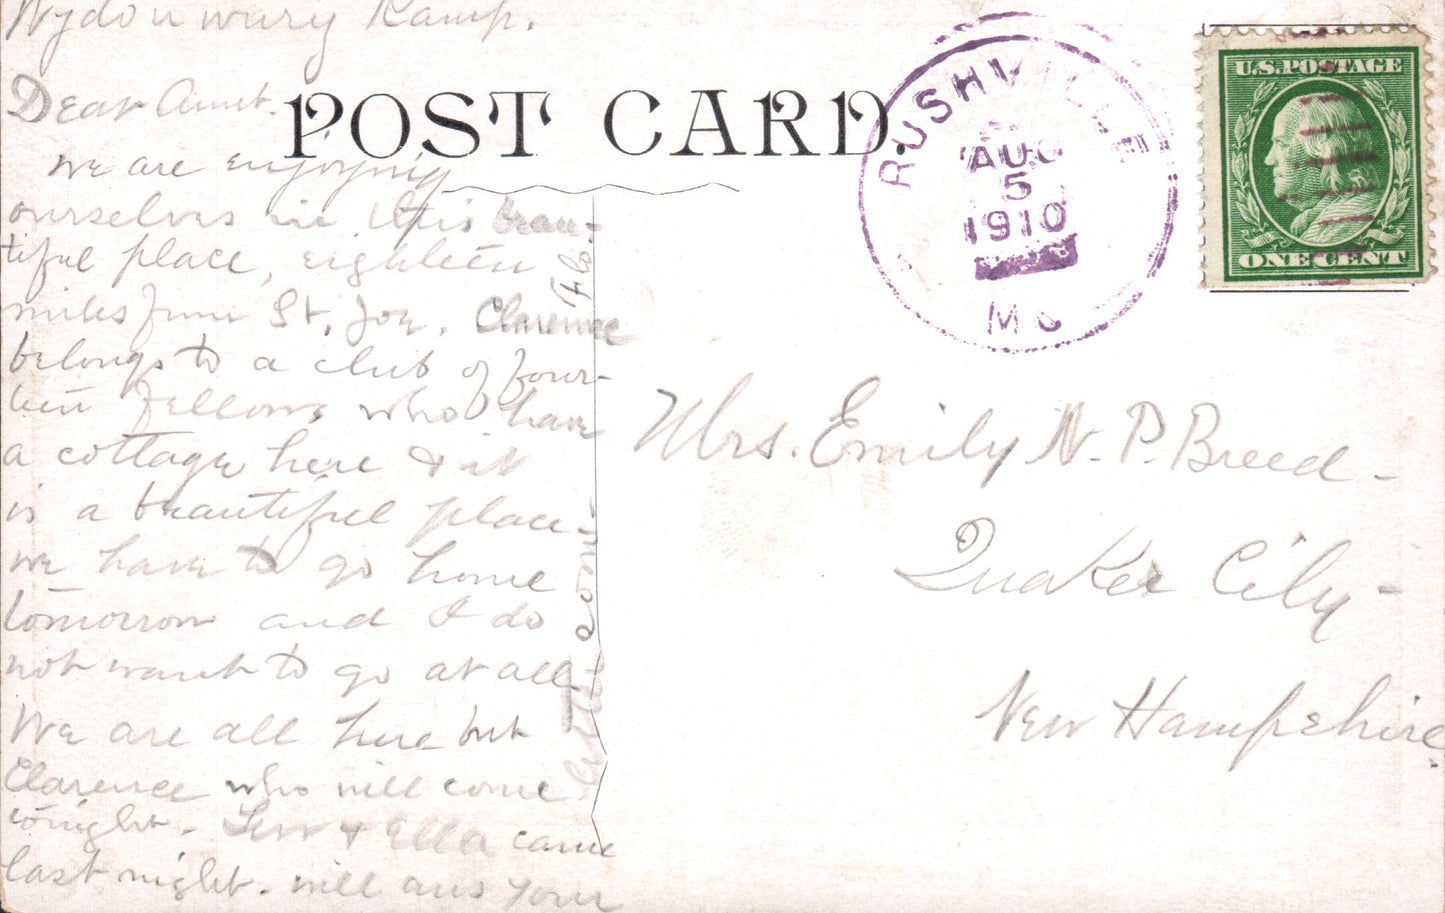 Wydownwury Kamp.
Dear Aunt.
We are enjoying
ourselves in this beau-
tiful place, eighteen
miles from St. Joe. Clarence
belongs to a club of four-
teen fellows who have
a cottage here & it
is a beautiful place.
we have to go home
tomorrow and I do
not want to go at all.
We are all here but
Clarence who will come
tonight. Lew & Ella came
last night. will ans your
letter soon.
Flo.
POST CARD.
RUSHVILLE
AUG
5
1910
MO
U.S. POSTAGE
ONE CENT
Mrs. Emily N. P. Breed -
Quaker City -
New Hampshire.